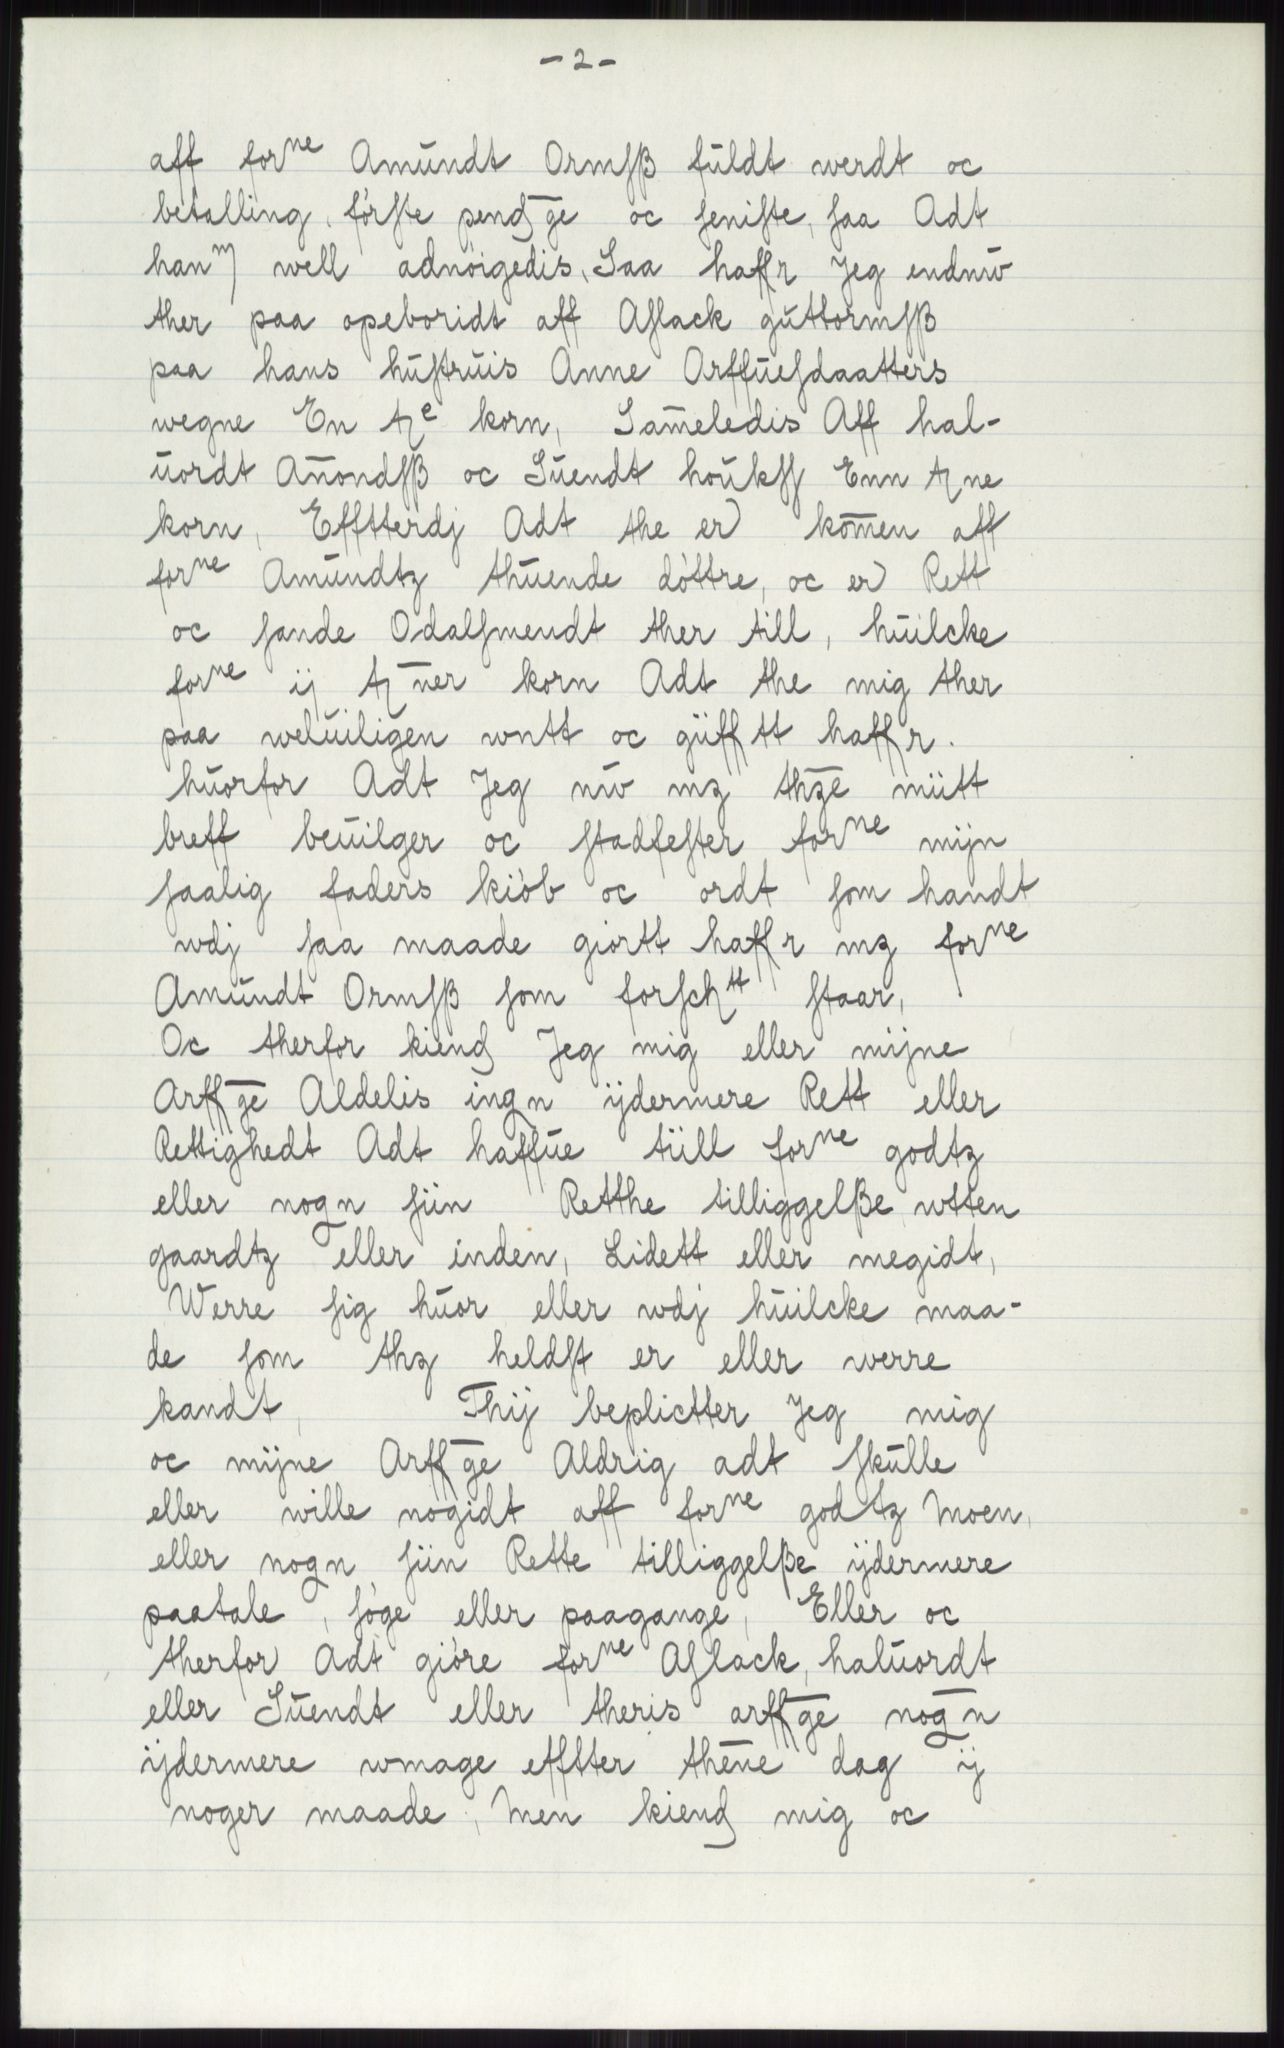 - 2 -
aff for^ne Amundt Ormsß fuldt werdt oc
betalling, første pendʒ g̅e oc seniste, saa Adt
han^m well adnøigedis, Saa haffr Jeg endnw
ther paa opeboridt aff Aslack guttormsß
paa hans hustruis Anne Orffuesdaatters
wegne En t^e korn, Sam̅eledis Aff hal-
uordt Anondsß oc Suendt houkss Enn tne
korn, Efftterdj Adt the er kom̅en aff
for^ne Amundtz thuende døttre, oc er Rett
oc sande Odalsmendt ther till, huilcke
for^ne ij t n̅er korn Adt the mig ther
paa weluiligen wntt oc güfftt haffr.
huorfor Adt Jeg nw mz thz̅e miitt
breff beuilger oc stadfester for^ne mijn
saalig faders kiøb oc ordt som handt
wdj saa maade giortt haffr mz for^ne
Amundt Ormsß som forsch^tt staar,
Oc therfor kiendʒ Jeg mig eller mijne
Arffg̅e Aldelis ingn ijdermere Rett eller
Rettighedt Adt haffue tiill for^ne godtz
eller nogn siin Retthe tilliggelße wtten
gaardtz eller inden, Lidett eller megidt,
Werre sig huor eller wdj huilcke maa-
de som thz heldst er eller werre
kandt, Thij beplictter Jeg mig
oc mijne Arffg̅e Aldrig adt skulle
eller wille nogidt aff for^ne godtz Moen,
eller nogn siin Rette tilliggelße ijdermere
paatale, søge eller paagange, Eller oc
therfor Adt giøre for^ne Aslack, haluordt
eller Suendt eller theris arffg̅e nog̅n
ijdermere wmage efftter then̅e dag ij
noger maade, Men kiendʒ mig oc